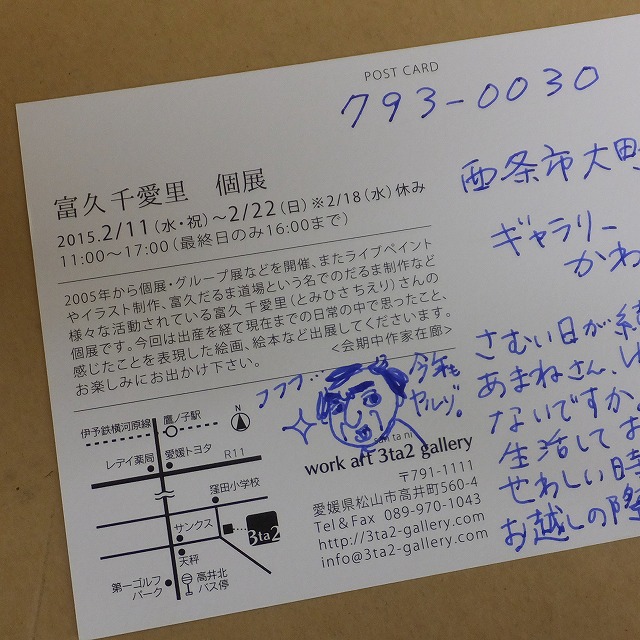 POST CARD
793-0030
西条市大町
ギャラリー
かわ
さむい日が続
あまねさん、
ないですか。
生活してお
せわしい時
お越しの際
富久千愛里 個展
2015.2/11(水・祝)～2/22(日)※2/18(水)休み
11:00～17:00(最終日のみ16:00まで)
2005年から個展・グループ展などを開催、またライブペイント
やイラスト制作、富久だるま道場という名でのだるま制作など
様々な活動されている富久千愛里(とみひさちえり)さんの
個展です。今回は出産を経て現在までの日常の中で思ったこと、
感じたことを表現した絵画、絵本など出展してくださいます。
お楽しみにお出かけ下さい。 <会期中作家在廊>
フフフ…
今年も
ヤルゾ。
san ta ni
work art 3ta2 gallery
〒791-1111
愛媛県松山市高井町560-4
Tel&Fax 089-970-1043
http://3ta2-gallery.com
info@3ta2-gallery.com
伊予鉄横河原線
鷹ノ子駅
N
レデイ薬局
愛媛トヨタ
R11
窪田小学校
サンクス
3ta2
天秤
第一ゴルフ
パーク
高井北
バス停